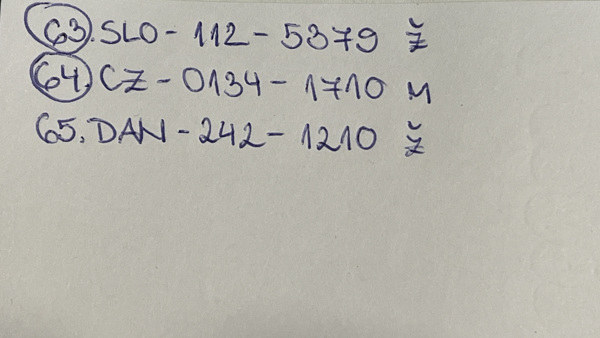 63. SLO - 112 - 5379 Ž
64. CZ - 0134 - 1710 M
65. DAN - 242 - 1210 Ž